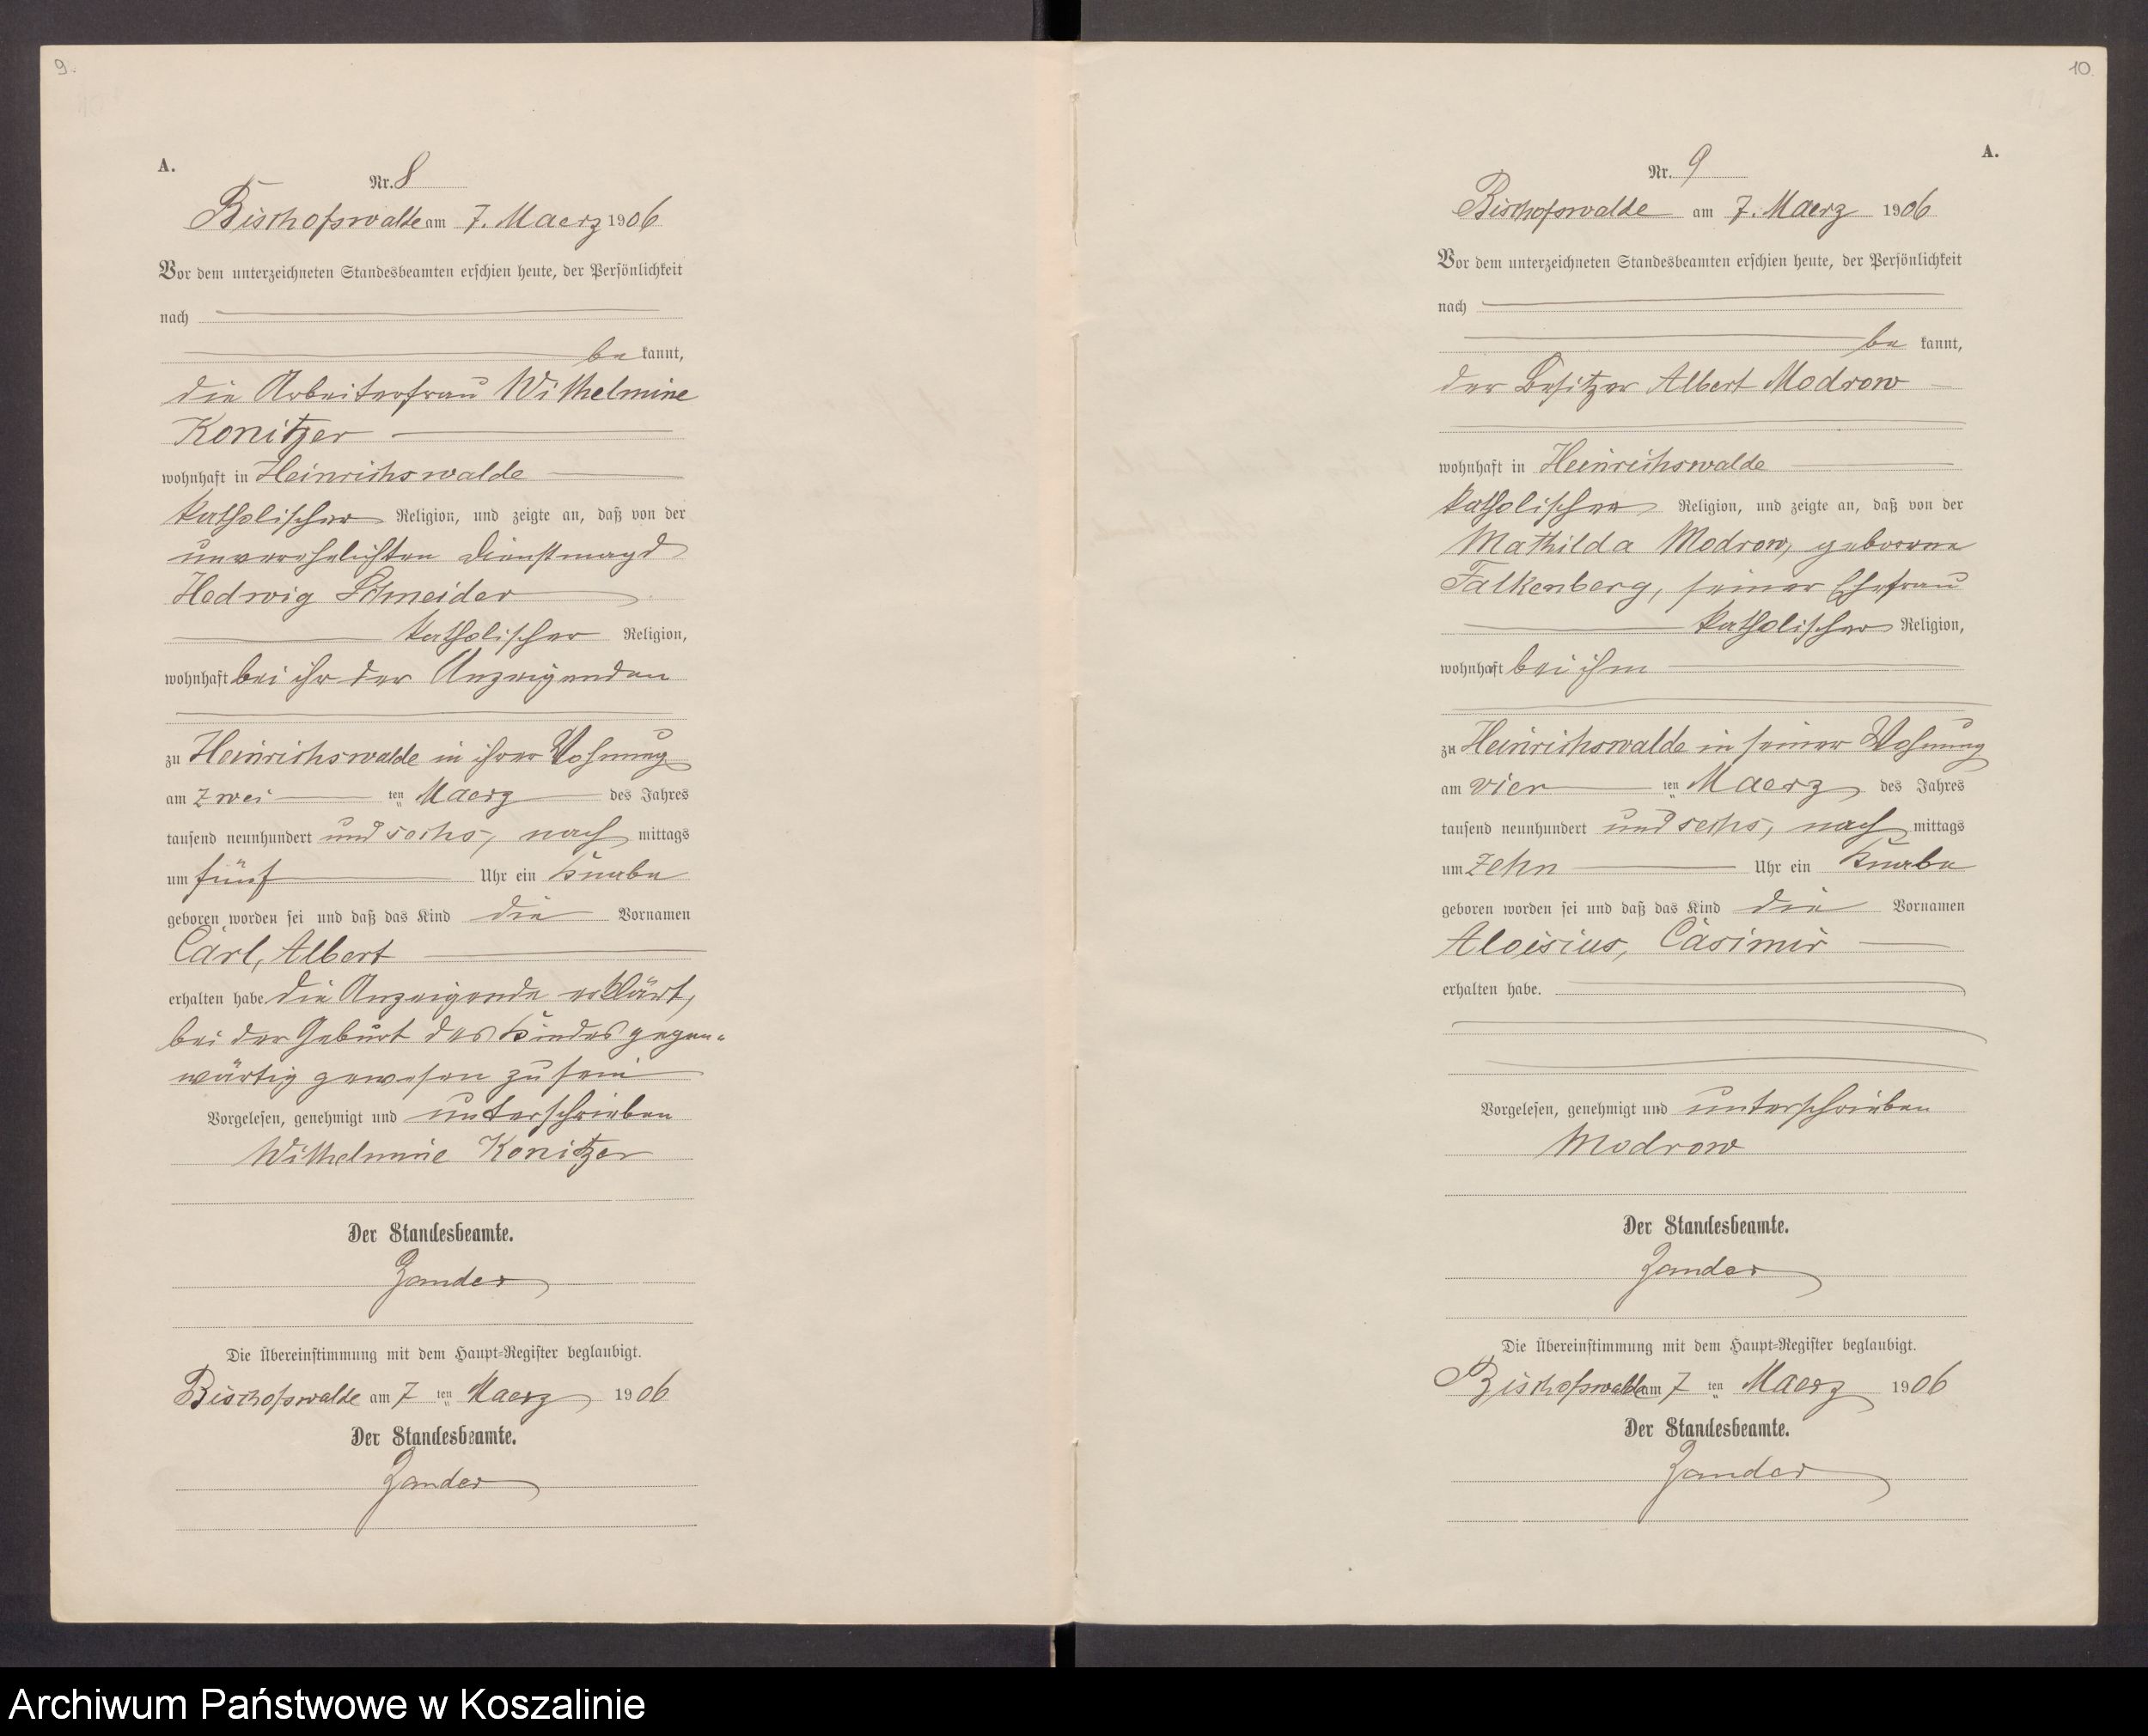 9.
A.
Nr. 8
Bischofswalde am 7. Maerz 1906
Vor dem unterzeichneten Standesbeamten erschien heute, der Persönlichkeit
nach
be kannt,
die Arbeiterfrau Wilhelmine
Konitzer
wohnhaft in Heinrichswalde
katholischer Religion, und zeigte an, daß von der
unverehelichten Dienstmagd
Hedwig Schneider
katholischer Religion,
wohnhaft bei ihr der Anzeigenden
zu Heinrichswalde in ihrer Wohnung
am zwei ten Maerz des Jahres
tausend neunhundert und sechs, nach mittags
um fünf Uhr ein Knabe
geboren worden sei und daß das Kind die Vornamen
Carl, Albert
erhalten habe die Anzeigende erklärt,
bei der Geburt des Kindes gegen-
wärtig gewesen zu sein
Vorgelesen, genehmigt und unterschrieben
Wilhelmine Konitzer
Der Standesbeamte.
Zander
Die Übereinstimmung mit dem Haupt-Register beglaubigt.
Bischofswalde am 7 ten Maerz 1906
Der Standesbeamte.
Zander
10.
A.
Nr. 9
Bischofswalde am 7. Maerz 1906
Vor dem unterzeichneten Standesbeamten erschien heute, der Persönlichkeit
nach
be kannt,
der Besitzer Albert Modrow
wohnhaft in Heinrichswalde
katholischer Religion, und zeigte an, daß von der
Mathilda Modrow, geborene
Falkenberg, seiner Ehefrau
katholischer Religion,
wohnhaft bei ihm
zu Heinrichswalde in seiner Wohnung
am vier ten Maerz des Jahres
tausend neunhundert und sechs, nach mittags
um zehn Uhr ein Knabe
geboren worden sei und daß das Kind die Vornamen
Aloisius, Casimir
erhalten habe.
Vorgelesen, genehmigt und unterschrieben
Modrow
Der Standesbeamte.
Zander
Die Übereinstimmung mit dem Haupt-Register beglaubigt.
Bischofswalde am 7 ten Maerz 1906
Der Standesbeamte.
Zander
Archiwum Państwowe w Koszalinie